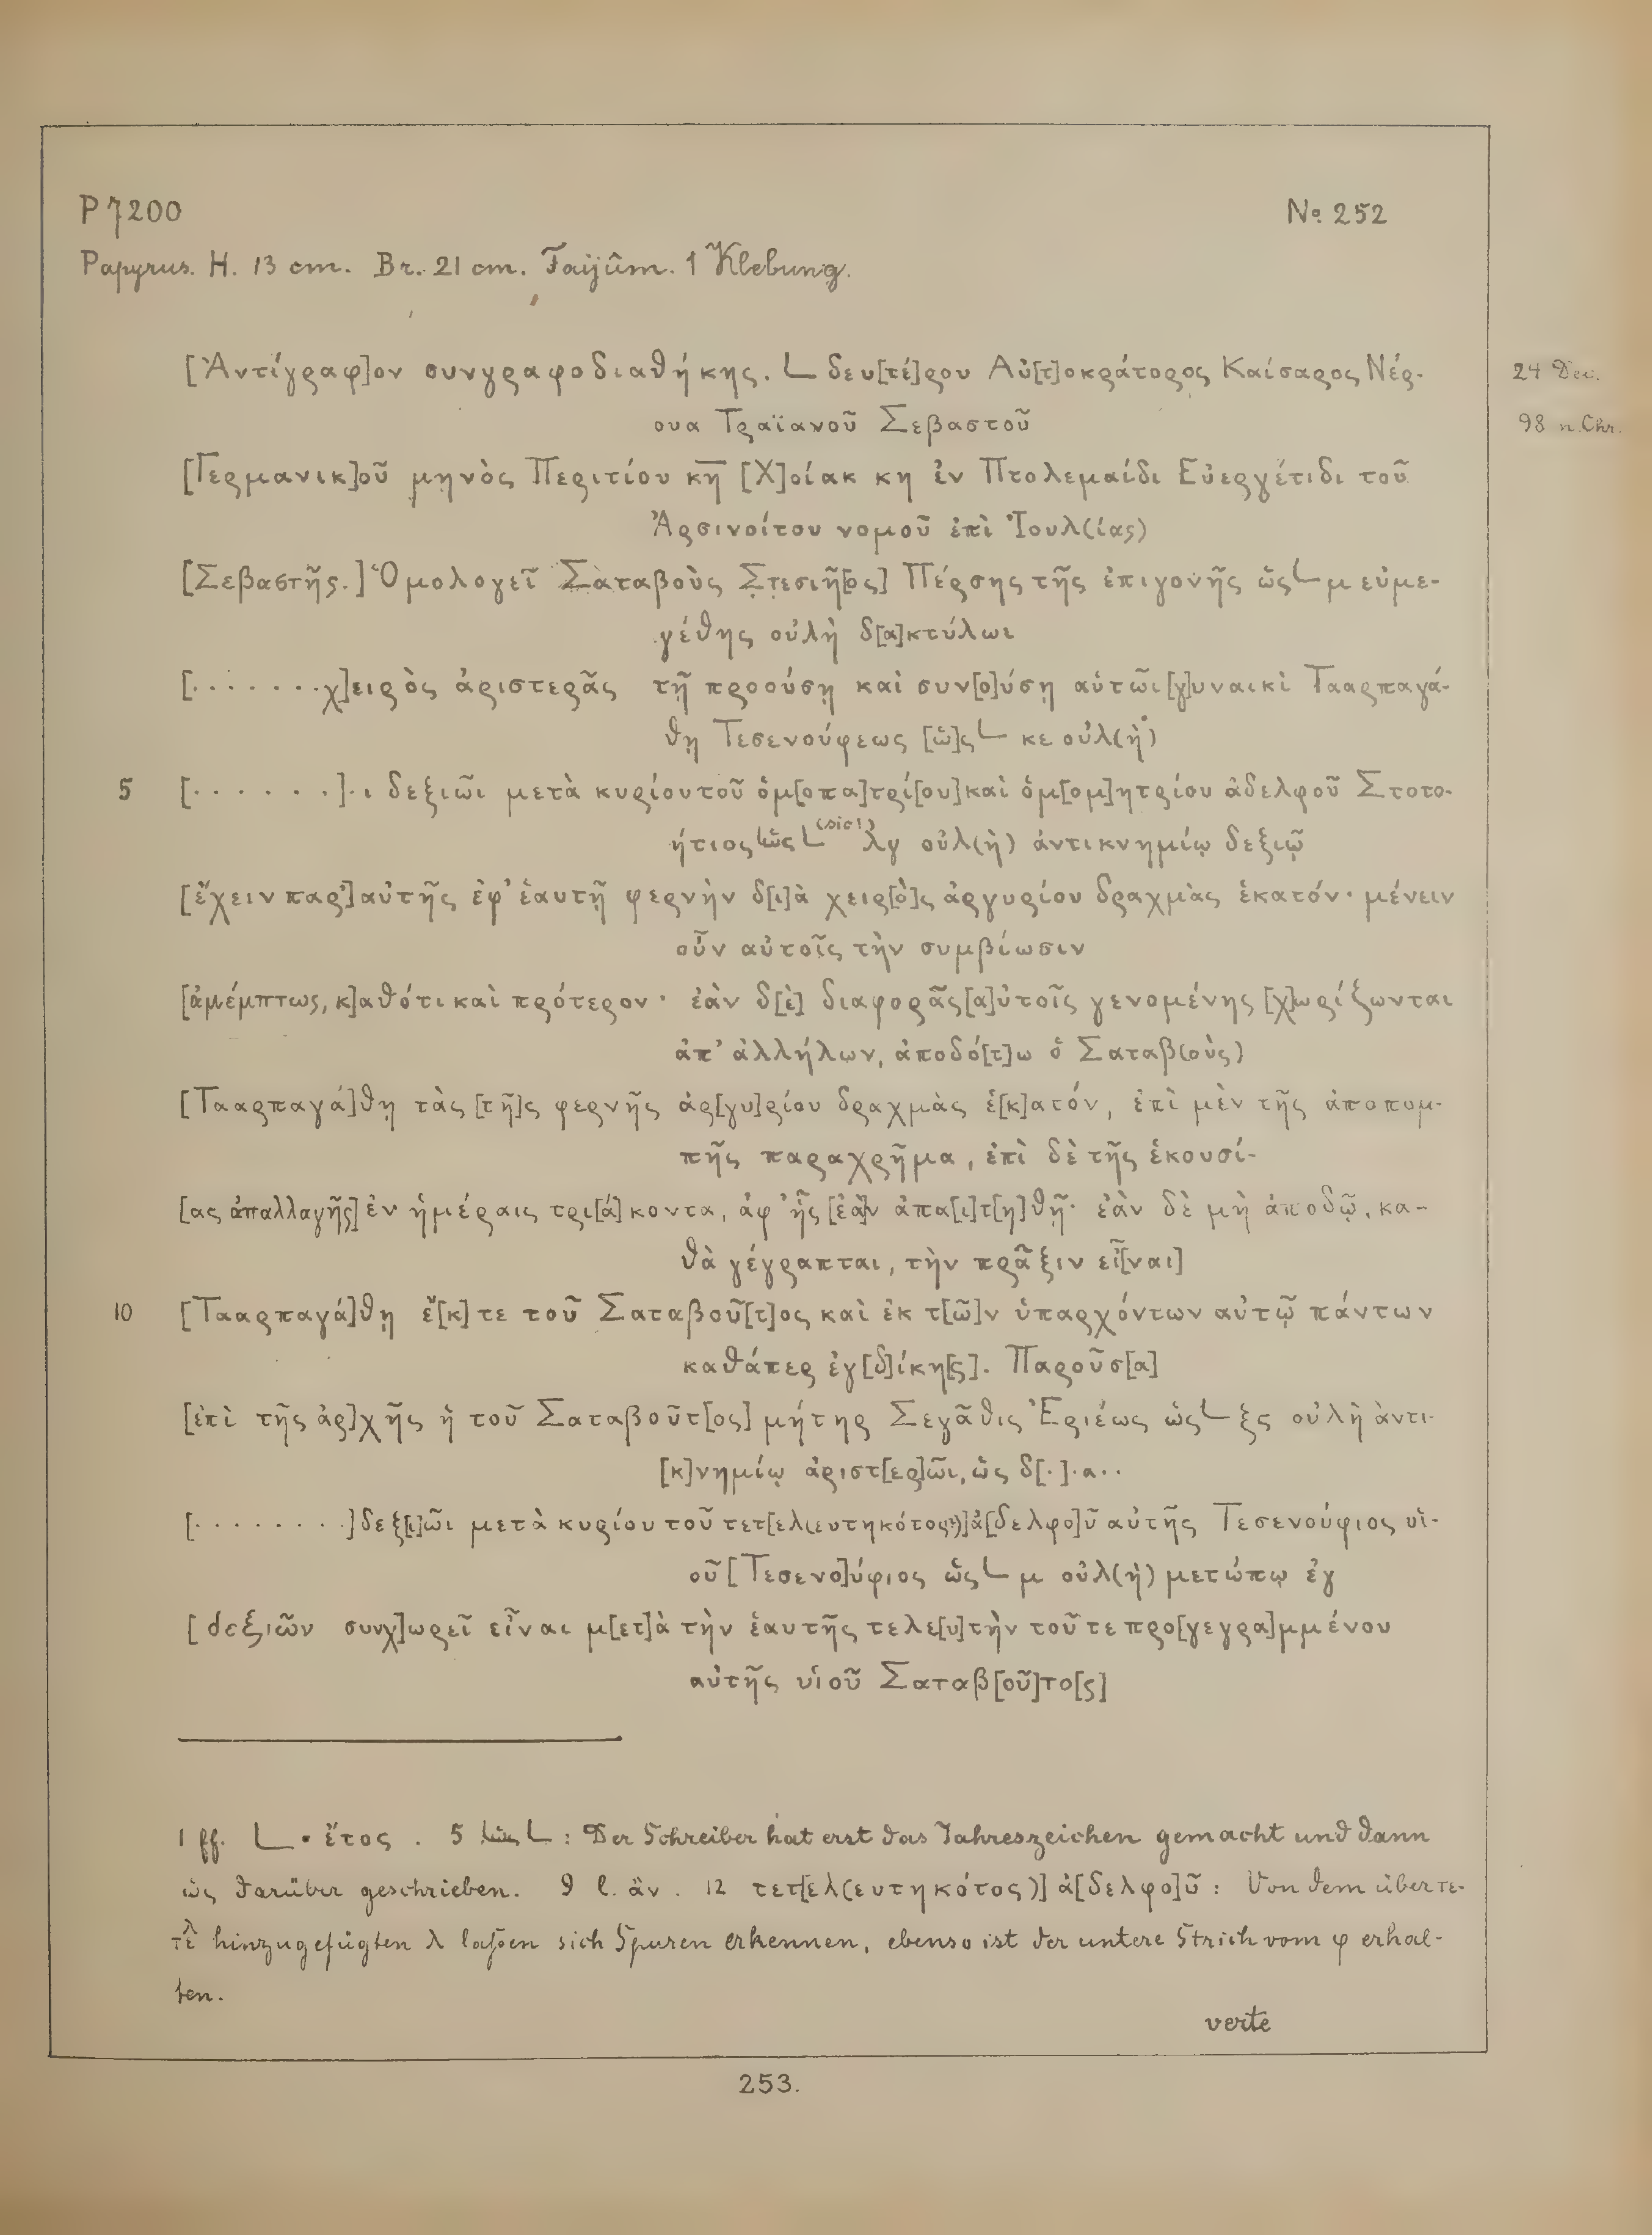 P 7200 Nº. 252
Papyrus. H. 13 cm. Br. 21 cm. Faijûm. 1 Klebung.
[Ἀντίγραφ]ον συνγραφοδιαθήκης. L δευ[τέ]ρου Αὐ[τ]οκράτορος Καίσαρος Νέρ- 24 Dec.
ουα Τραϊανοῦ Σεβαστοῦ 98 n. Chr.
[Γερμανικ]οῦ μηνὸς Περιτίου κη̅ [Χ]οίακ κη ἐν Πτολεμαίδι Εὐεργέτιδι τοῦ
Ἀρσινοίτου νομοῦ ἐπὶ Ἰουλ(ίας)
[Σεβαστῆς.] Ὁμολογεῖ Σαταβοὺς Σ̣τ̣εσιῆ[ος] Πέρσης τῆς ἐπιγονῆς ὡς L μ εὐμε-
γέθης οὐλὴ δ[α]κτύλωι
[. . . . . . . χ]ειρὸς ἀριστερᾶς τῇ προούσῃ καὶ συν[ο]ύσῃ αὐτῶι [γ]υναικὶ Τααρπαγά-
θῃ Τεσενούφεως [ὡ]ς L κε οὐλ(ὴ)
5 [. . . . . . .]. ι δεξιῶι μετὰ κυρίου τοῦ ὁμ[οπα]τρί[ου] καὶ ὁμ[ομ]ητρίου ἀδελφοῦ Στοτο-
ήτιος L ὡς L (sic!) λγ οὐλ(ὴ) ἀντικνημίῳ δεξιῷ
[ἔχειν παρ'] αὐτῆς ἐφ' ἑαυτῇ φερνὴν δ[ι]ὰ χειρ[ὸ]ς ἀργυρίου δραχμὰς ἑκατόν· μένειν
οὖν αὐτοῖς τὴν συμβίωσιν
[ἀμέμπτως, κ]αθότι καὶ πρότερον· ἐὰν δ[ὲ] διαφορᾶς [α]ὐτοῖς γενομένης [χ]ωρίζωνται
ἀπ' ἀλλήλων, ἀποδό[τ]ω ὁ Σαταβ(οὺς)
[Τααρπαγά]θῃ τὰς [τῆ]ς φερνῆς ἀρ[γυ]ρίου δραχμὰς ἑ[κ]ατόν, ἐπὶ μὲν τῆς ἀποπομ-
πῆς παραχρῆμα, ἐπὶ δὲ τῆς ἑκουσί-
[ας ἀπαλλαγῆς] ἐν ἡμέραις τρι[ά]κοντα, ἀφ' ἧς [ἐὰ]ν ἀπα[ι]τ[η]θῇ· ἐὰν δὲ μὴ ἀποδῷ, κα-
θὰ γέγραπται, τὴν πρᾶξιν εἶ[ναι]
10 [Τααρπαγά]θῃ ἔ[κ] τε τοῦ Σαταβοῦ[τ]ος καὶ ἐκ τ[ῶ]ν ὑπαρχόντων αὐτῷ πάντων
καθάπερ ἐγ [δ]ίκη[ς]. Παροῦσ[α]
[ἐπὶ τῆς ἀρ]χῆς ἡ τοῦ Σαταβοῦτ[ος] μήτηρ Σεγᾶθις Ἑριέως ὡς L ξς οὐλὴ ἀντι-
[κ]νημίῳ ἀριστ[ερ]ῶι, ὡς δ[.].α..
[. . . . . . . .] δεξ[ι]ῶι μετὰ κυρίου τοῦ τετ[ελ(ευτηκότος?)] ἀ[δελφο]ῦ αὐτῆς Τεσενούφιος υἱ-
οῦ [Τεσενο]ύφιος ὡς L μ οὐλ(ὴ) μετώπῳ ἐγ
[δεξιῶν συνχ]ωρεῖ εἶναι μ[ετ]ὰ τὴν ἑαυτῆς τελε[υ]τὴν τοῦ τε προ[γεγρα]μμένου
αὐτῆς υἱοῦ Σαταβ[οῦ]το[ς]
1 ff. L = ἔτος. 5 L ὡς L : Der Schreiber hat erst das Jahreszeichen gemacht und dann
ὡς darüber geschrieben. 9 l. ἂν. 12 τετ[ελ(ευτηκότος)] ἀ[δελφο]ῦ : Von dem über τε-
τε̂ hinzugefügten λ laſsen sich Spuren erkennen, ebenso ist der untere Strich vom φ erhal-
ten.
verte
253.